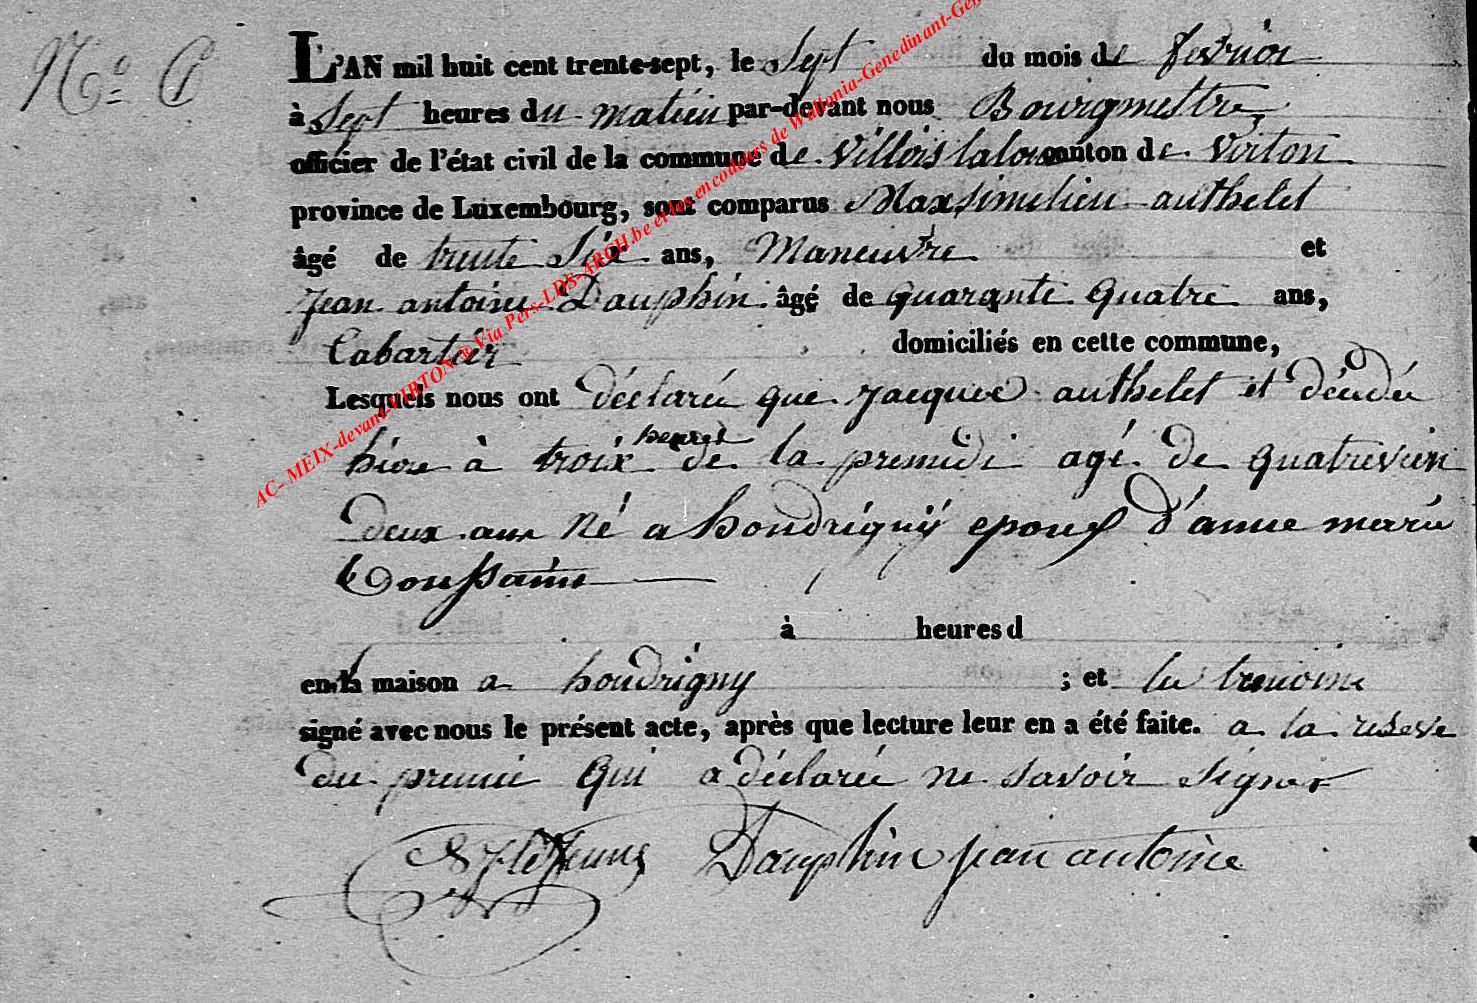 N.º
L'AN mil huit cent trente-sept, le Sept du mois de fevrier
à Sept heures du matien par-devant nous Bourgmestre,
officier de l'état civil de la commune de Villois laloue canton de Virton
province de Luxembourg, sont comparus Maxsimelien authelet
âgé de trente Six ans, Maneuvre et
Jean antoine Dauphin âgé de quarante quatre ans,
Cabartier domiciliés en cette commune,
Lesquels nous ont déclarée que jacque authelet et décédée
hiere à troix heures de la premidi agé de quatrevien
deux ans né a houdrignÿ epouse d'anne marie
toussaint
à heures d
en la maison a houdrigny ; et les temoine
signé avec nous le présent acte, après que lecture leur en a été faite. a la reserve
du premie qui a déclarée ne savoir signer
Dauphin jean antoine
AC- MEIX-devant-VIRTON ® Via Pers-LDS-ARCH.be et les encodeurs de Wallonia-Genedinant-Gen